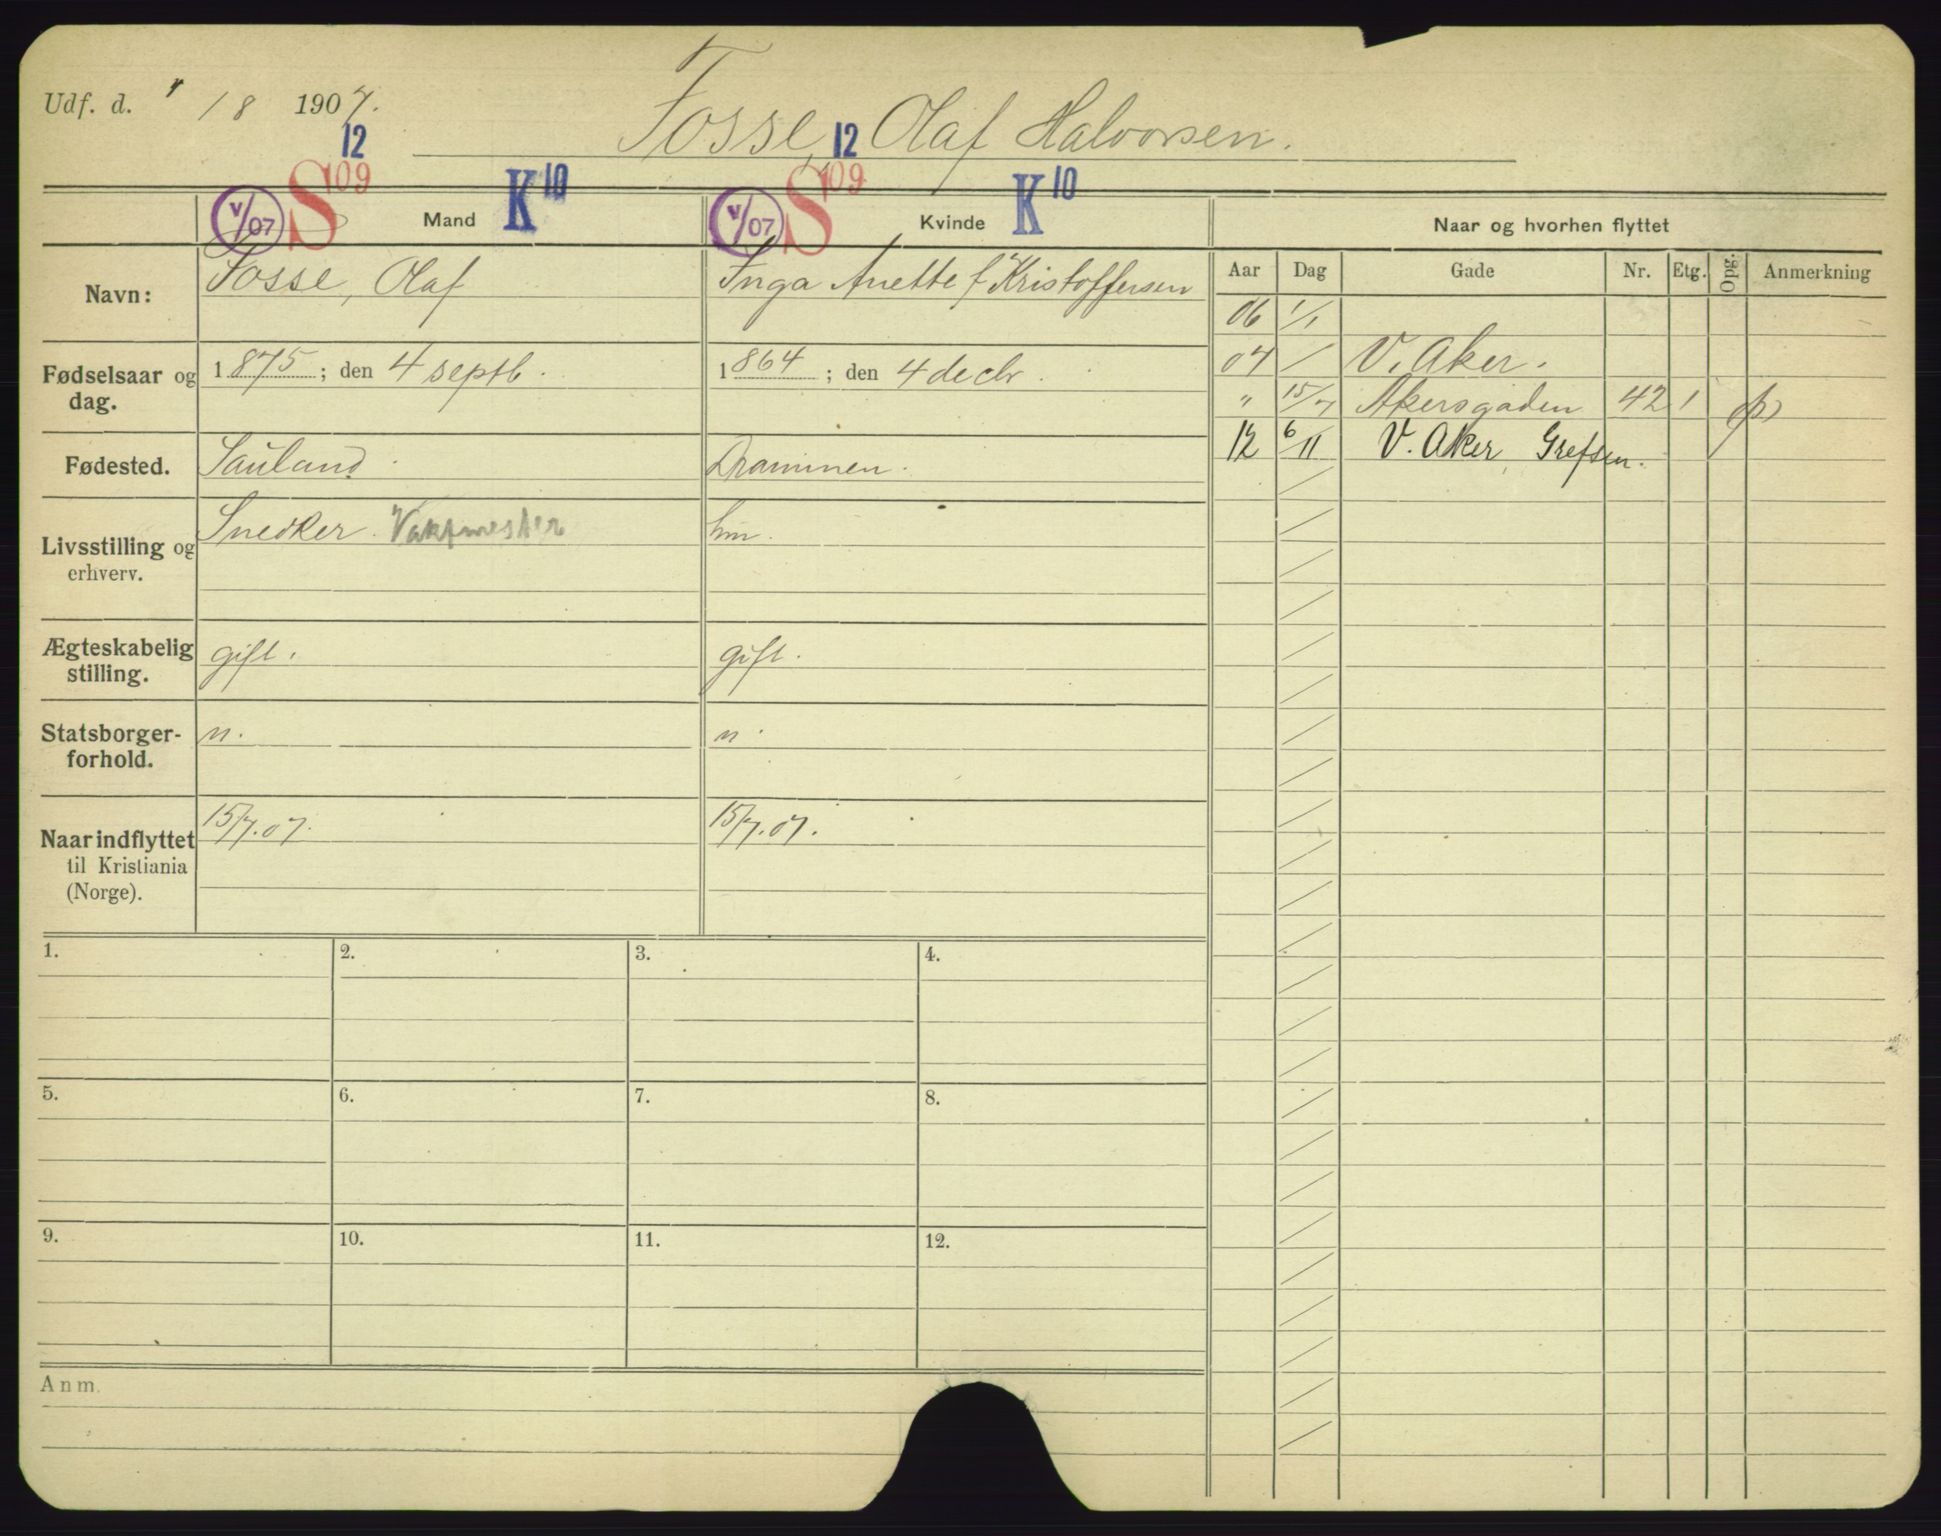 Udf. d. 1/8 1907.
Fosse, Olaf Halvorsen.
12 12
V/07 S 09 Mand K 10 V/07 S 09 Kvinde K 10 Naar og hvorhen flyttet
Navn: Fosse, Olaf Inga Anette f Kristoffersen
Aar Dag Gade Nr. Etg. Opg. Anmerkning
06 1/1
07 / V. Aker.
" 15/7 Akersgaden 42 1
12 6/11 V. Aker, Grefsen.
Fødselsaar og dag. 1875; den 4 septb. 1864; den 4 decbr.
Fødested. Sauland. Drammen.
Livsstilling og erhverv. Snedker. Vaktmester hm.
Ægteskabelig stilling. gift. gift.
Statsborger-forhold. n. n.
Naar indflyttet til Kristiania (Norge). 15/7.07. 15/7.07.
1. 2. 3. 4.
5. 6. 7. 8.
9. 10. 11. 12.
Anm.